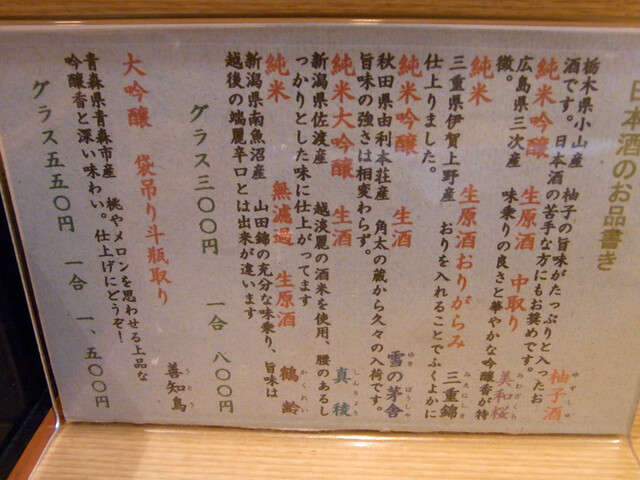 日本酒のお品書き
柚子酒
ゆずしゅ
栃木県小山産 柚子の旨味がたっぷりと入ったお
酒です。日本酒の苦手な方にもお奨めです。
純米吟醸 生原酒 中取り 美和桜
みわざくら
広島県三次産 味乗りの良さと華やかな吟醸香が特
徴。
純米 生原酒おりがらみ 三重錦
みえにしき
三重県伊賀上野産 おりを入れることでふくよかに
仕上りました。
純米吟醸 生酒 雪の茅舎
ゆき ぼうしゃ
秋田県由利本荘産 角太の蔵から久々の入荷です。
旨味の強さは相変わらず。
純米大吟醸 生酒 真稜
しんりょう
新潟県佐渡産 越淡麗の酒米を使用、腰のあるし
っかりとした味に仕上がってます
純米 無濾過 生原酒 鶴齢
かくれい
新潟県南魚沼産 山田錦の充分な味乗り、旨味は
越後の端麗辛口とは出来が違います
グラス三〇〇円 一合 八〇〇円
大吟醸 袋吊り斗瓶取り 善知鳥
うとう
青森県青森市産 桃やメロンを思わせる上品な
吟醸香と深い味わい。仕上げにどうぞ!
グラス五五〇円 一合 一、五〇〇円